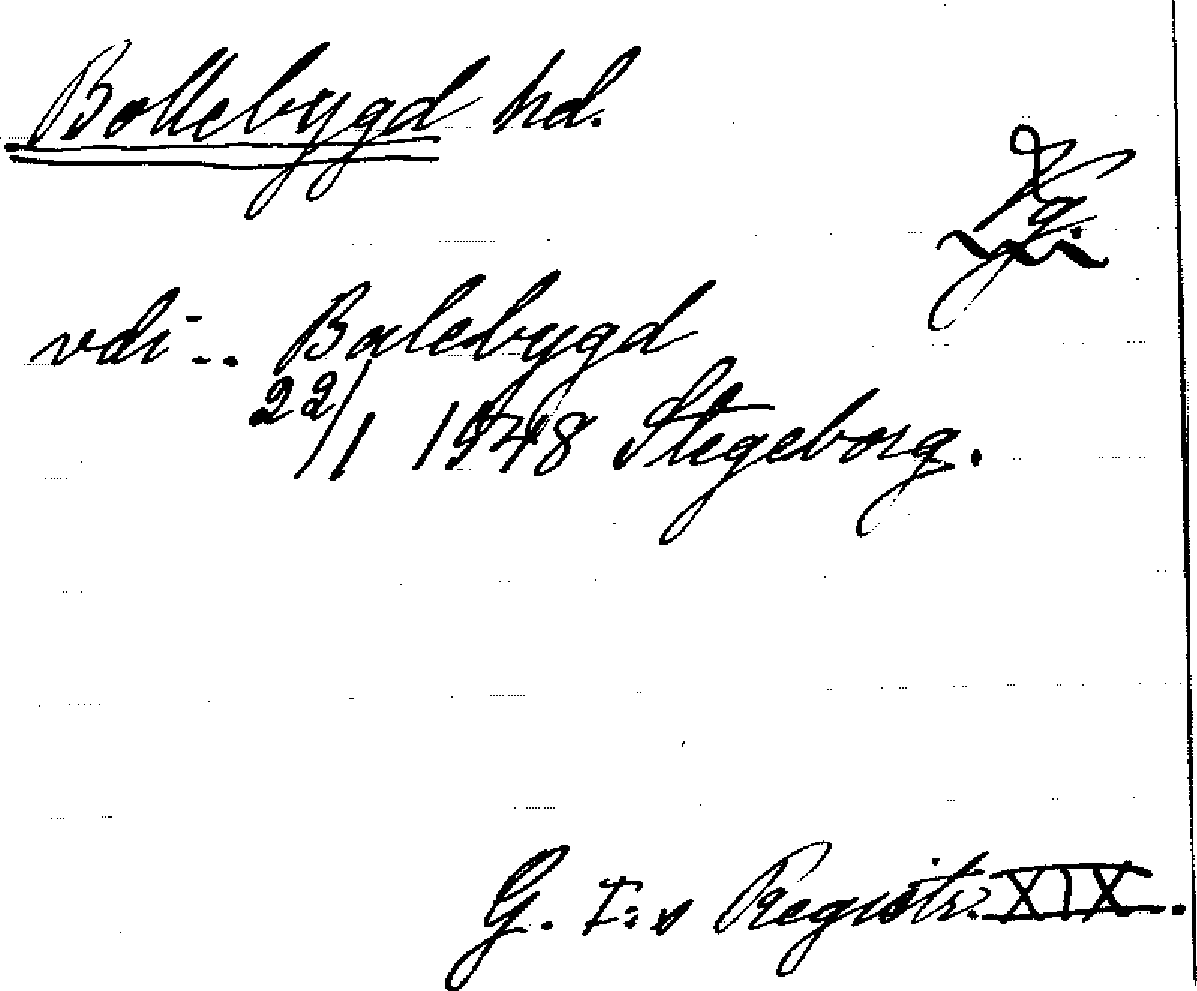 Bollebygd hd.
Vg.
vdi -.. Balebygd
22/1 1548 Stegeborg.
G. I:s Registr. XIX.